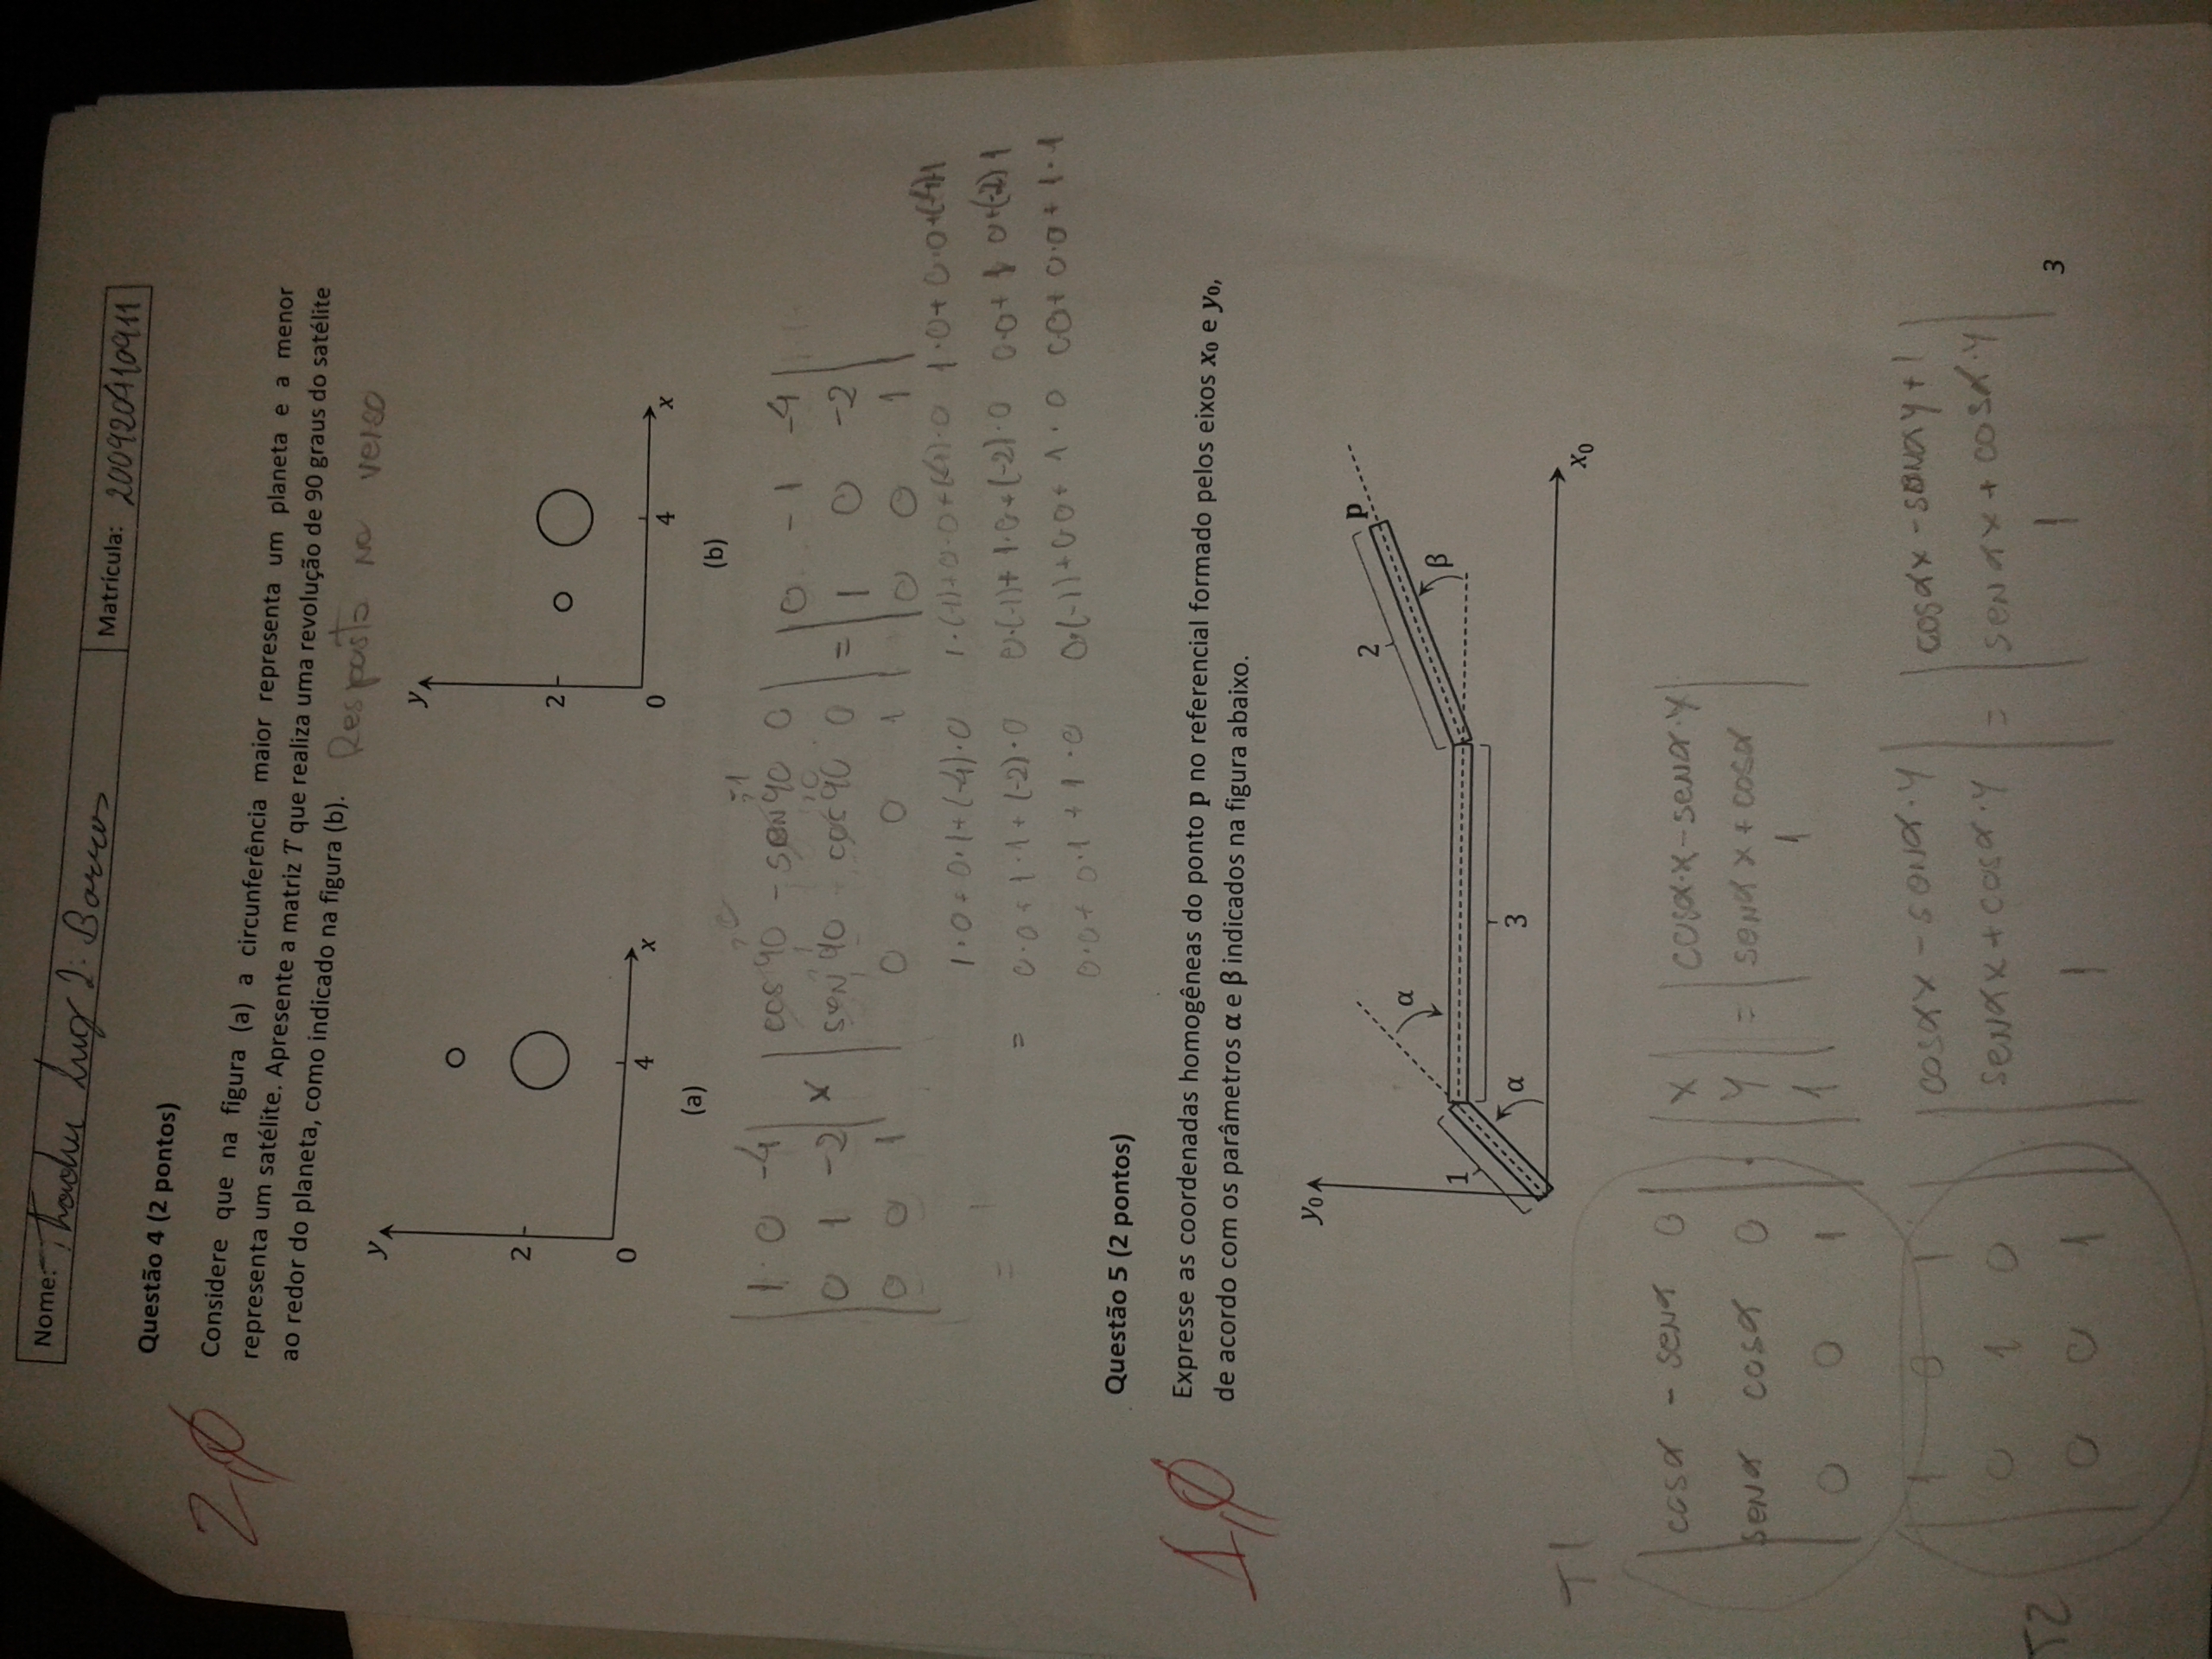 Nome: Luiz J. Barros
Matrícula: 200920410911
Questão 4 (2 pontos)
2,0
Considere que na figura (a) a circunferência maior representa um planeta e a menor
representa um satélite. Apresente a matriz T que realiza uma revolução de 90 graus do satélite
ao redor do planeta, como indicado na figura (b). Resposta no verso
y
2
0
4
x
(a)
y
2
0
4
x
(b)
1 0 -4
0 1 -2
0 0 1
x
cos 90 - sen 90 0
sen 90 cos 90 0
0 0 1
=
0 -1 -4
1 0 -2
0 0 1
1·0+0·1+(-4)·0 1·(-1)+0·0+(-4)·0 1·0+0·0+(-4)·1
= 0·0+1·1+(-2)·0 0·(-1)+1·0+(-2)·0 0·0+1·0+(-2)1
0·0+0·1+1·0 0·(-1)+00+1·0 00+0·0+1·1
Questão 5 (2 pontos)
1,0
Expresse as coordenadas homogêneas do ponto p no referencial formado pelos eixos x0 e y0,
de acordo com os parâmetros α e β indicados na figura abaixo.
y0
1
α
α
3
2
p
β
x0
T1
cosα - senα 0
senα cosα 0
0 0 1
·
x
y
1
=
cosα·x-senα·y
senα x + cosα
1
T2
1 0 1
0 1 0
0 0 1
cosαx - senα·y
senαx + cosα·y
1
=
cosαx - senαy + 1
senαx + cosα·y
1
3